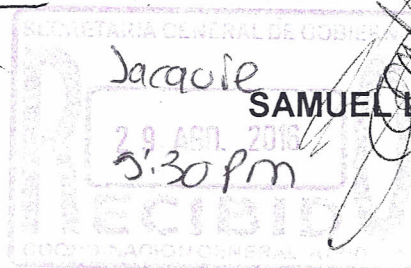 SECRETARIA GENERAL DE GOBIERNO
Jacquie
SAMUEL
29 AGO. 2016
5:30 pm
RECIBIDO
COORDINACION GENERAL